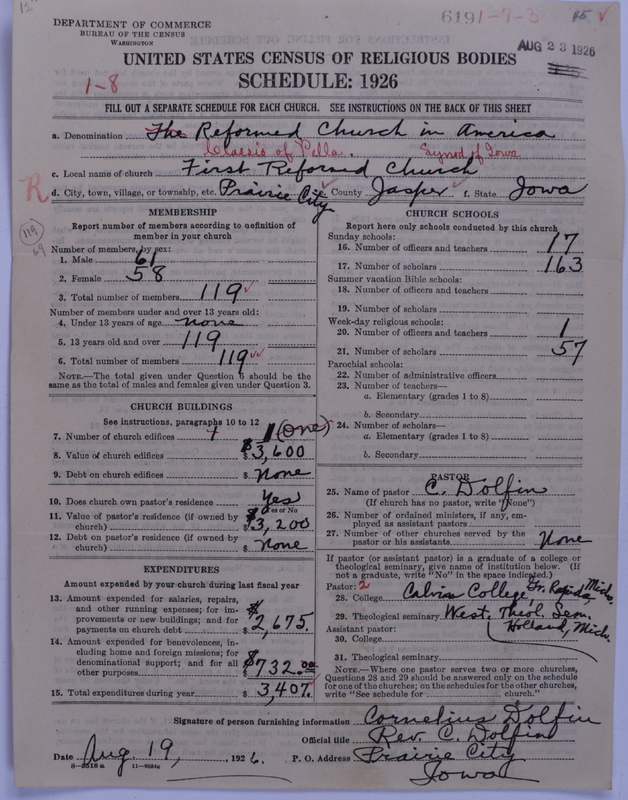 6191-7-3
DEPARTMENT OF COMMERCE
BUREAU OF THE CENSUS
WASHINGTON
AUG 23 1926
UNITED STATES CENSUS OF RELIGIOUS BODIES
SCHEDULE: 1926
1-8
FILL OUT A SEPARATE SCHEDULE FOR EACH CHURCH. SEE INSTRUCTIONS ON THE BACK OF THIS SHEET
a. Denomination The Reformed Church in America
Classis of Pella. Synod of Iowa
c. Local name of church First Reformed Church
R
d. City, town, village, or township, etc. Prairie City e. County Jasper f. State Iowa
MEMBERSHIP
Report number of members according to definition of
member in your church
119
69
Number of members, by sex:
1. Male 61
2. Female 58
3. Total number of members 119
Number of members under and over 13 years old:
4. Under 13 years of age none
5. 13 years old and over 119
6. Total number of members 119
NOTE.—The total given under Question 6 should be the
same as the total of males and females given under Question 3.
CHURCH BUILDINGS
See instructions, paragraphs 10 to 12
7. Number of church edifices 1 (one)
8. Value of church edifices $3,600
9. Debt on church edifices $ None
10. Does church own pastor's residence Yes
Yes or No
11. Value of pastor's residence (if owned by
church) $3,200
12. Debt on pastor's residence (if owned by
church) $ None
EXPENDITURES
Amount expended by your church during last fiscal year
13. Amount expended for salaries, repairs,
and other running expenses; for im-
provements or new buildings; and for
payments on church debt $2,675.
14. Amount expended for benevolences, in-
cluding home and foreign missions; for
denominational support; and for all
other purposes $732.00
15. Total expenditures during year $3,407.
CHURCH SCHOOLS
Report here only schools conducted by this church
Sunday schools:
16. Number of officers and teachers 17
17. Number of scholars 163
Summer vacation Bible schools:
18. Number of officers and teachers
19. Number of scholars
Week-day religious schools:
20. Number of officers and teachers 1
21. Number of scholars 57
Parochial schools:
22. Number of administrative officers
23. Number of teachers—
a. Elementary (grades 1 to 8)
b. Secondary
24. Number of scholars—
a. Elementary (grades 1 to 8)
b. Secondary
PASTOR
25. Name of pastor C. Dolfin
(If church has no pastor, write "None")
26. Number of ordained ministers, if any, em-
ployed as assistant pastors
27. Number of other churches served by the
pastor or his assistants None
If pastor (or assistant pastor) is a graduate of a college or
theological seminary, give name of institution below. (If
not a graduate, write "No" in the space indicated.)
Pastor: 2
28. College Calvin College, Gr. Rapids, Mich.
29. Theological seminary West. Theol. Sem.
Holland, Mich.
Assistant pastor:
30. College
31. Theological seminary
NOTE.—Where one pastor serves two or more churches,
Questions 28 and 29 should be answered only on the schedule
for one of the churches; on the schedules for the other churches,
write "See schedule for church."
Signature of person furnishing information Cornelius Dolfin
Official title Rev. C. Dolfin
Date Aug 19, 1926. P. O. Address Prairie City
Iowa
8-5518a 11-9084a